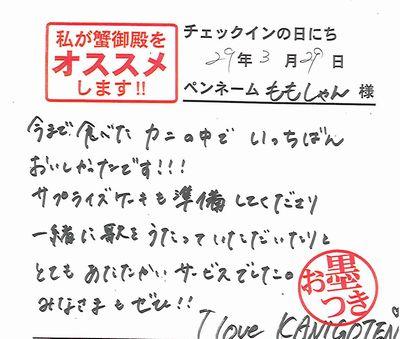 私が蟹御殿を
オススメ
します!!
チェックインの日にち
29年3月29日
ペンネーム ももしゃん 様
今まで食べたカニの中でいっちばん
おいしかったです!!!
サプライズケーキも準備してくださり
一緒に歌をうたっていただいたりと
とてもあたたかいサービスでした。
みなさまもぜひ!!
I love KANIGOTEN
お墨つき